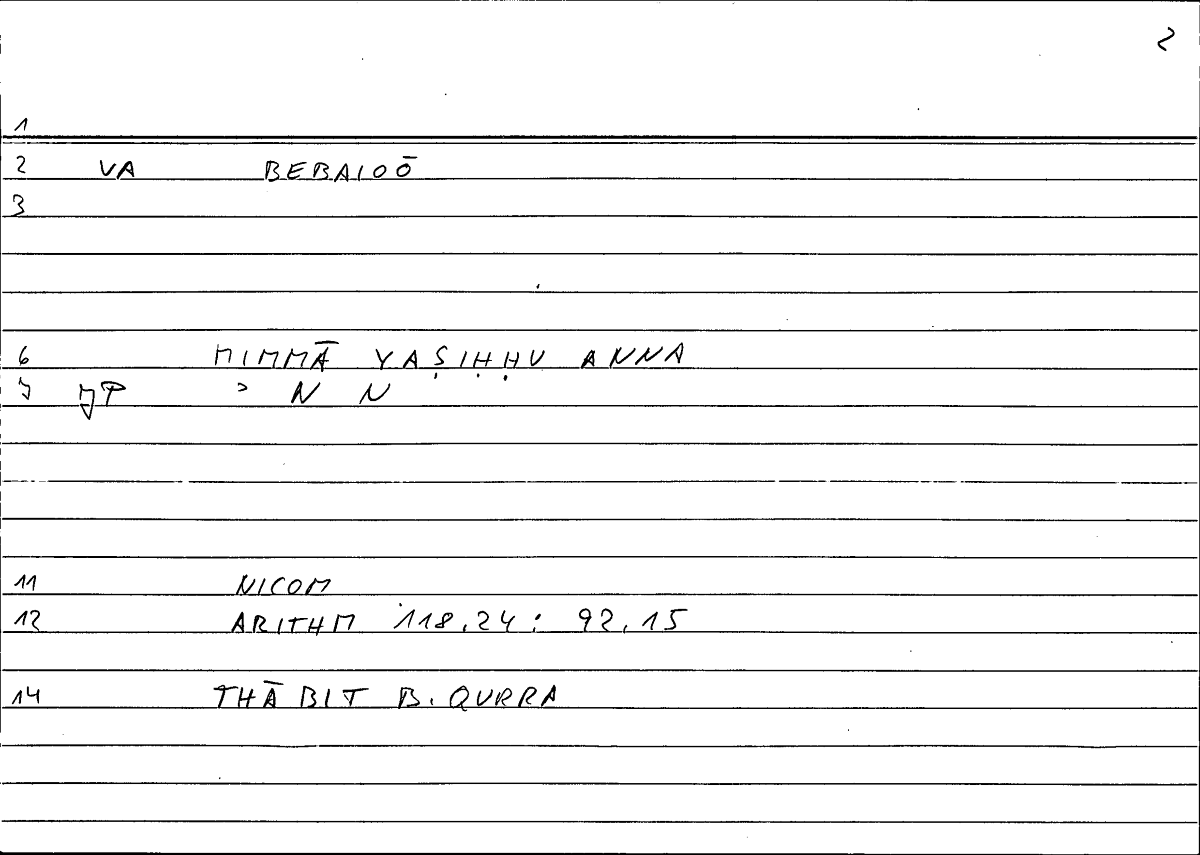 2
1
2 VA BEBAIOŌ
3
6 MIMMĀ YAṢIḤḤU ANNA
7 > N N
11 NICOM
12 ARITHM 118.24: 92.15
14 THĀBIT B. QURRA